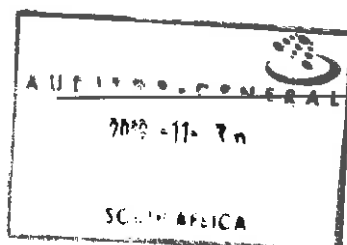 AUDITOR-GENERAL
-11-
SOUTH AFRICA